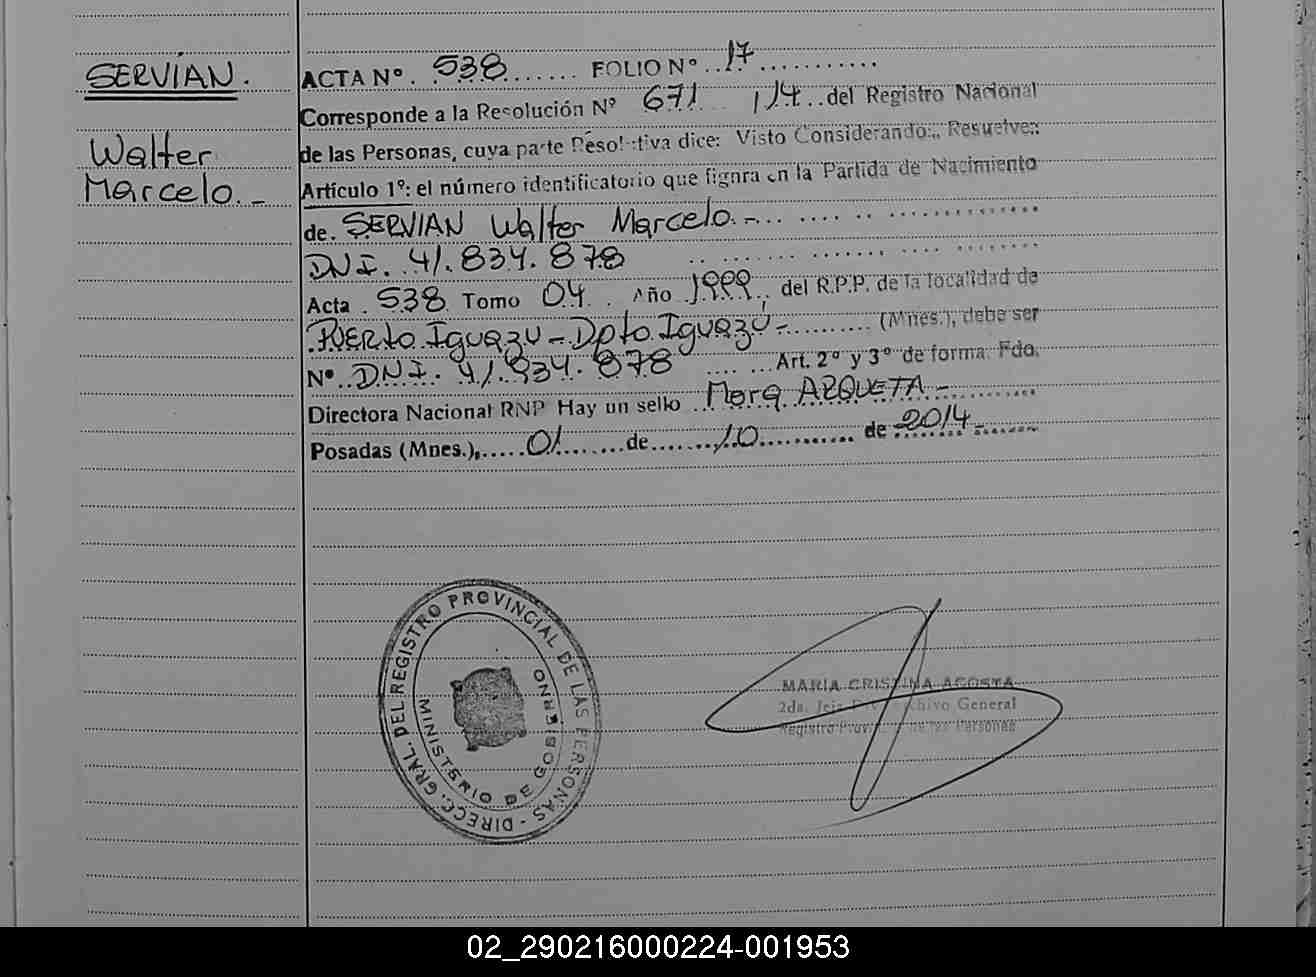 SERVIAN.
Walter
Marcelo. -
ACTA Nº. 538....... FOLIO Nº..17............
Corresponde a la Resolución Nº 671 /14..del Registro Nacional
de las Personas, cuya parte Resolutiva dice: Visto Considerando:, Resuelve:
Artículo 1º: el número identificatorio que figura en la Partida de Nacimiento
de. SERVIAN Walter Marcelo.-... .... .. ................
DNI. 41.834.878
Acta . 538 Tomo 04 . Año 1999. del R.P.P. de la localidad de
PUERto Iguazu - Dpto Iguazú-.......... (Mnes.), debe ser
Nº..DNI. 41.834.878 .... ...Art. 2º y 3º de forma. Fdo.
Directora Nacional RNP Hay un sello ..Mora ARQUETA-
Posadas (Mnes.),.....01........de.......10........... de 2014.-
DIRECC. GRAL. DEL REGISTRO PROVINCIAL DE LAS PERSONAS -
MINISTERIO DE GOBIERNO
MARIA CRISTINA ACOSTA
2da. Jefa Archivo General
Registro Provincial de las Personas
02_290216000224-001953